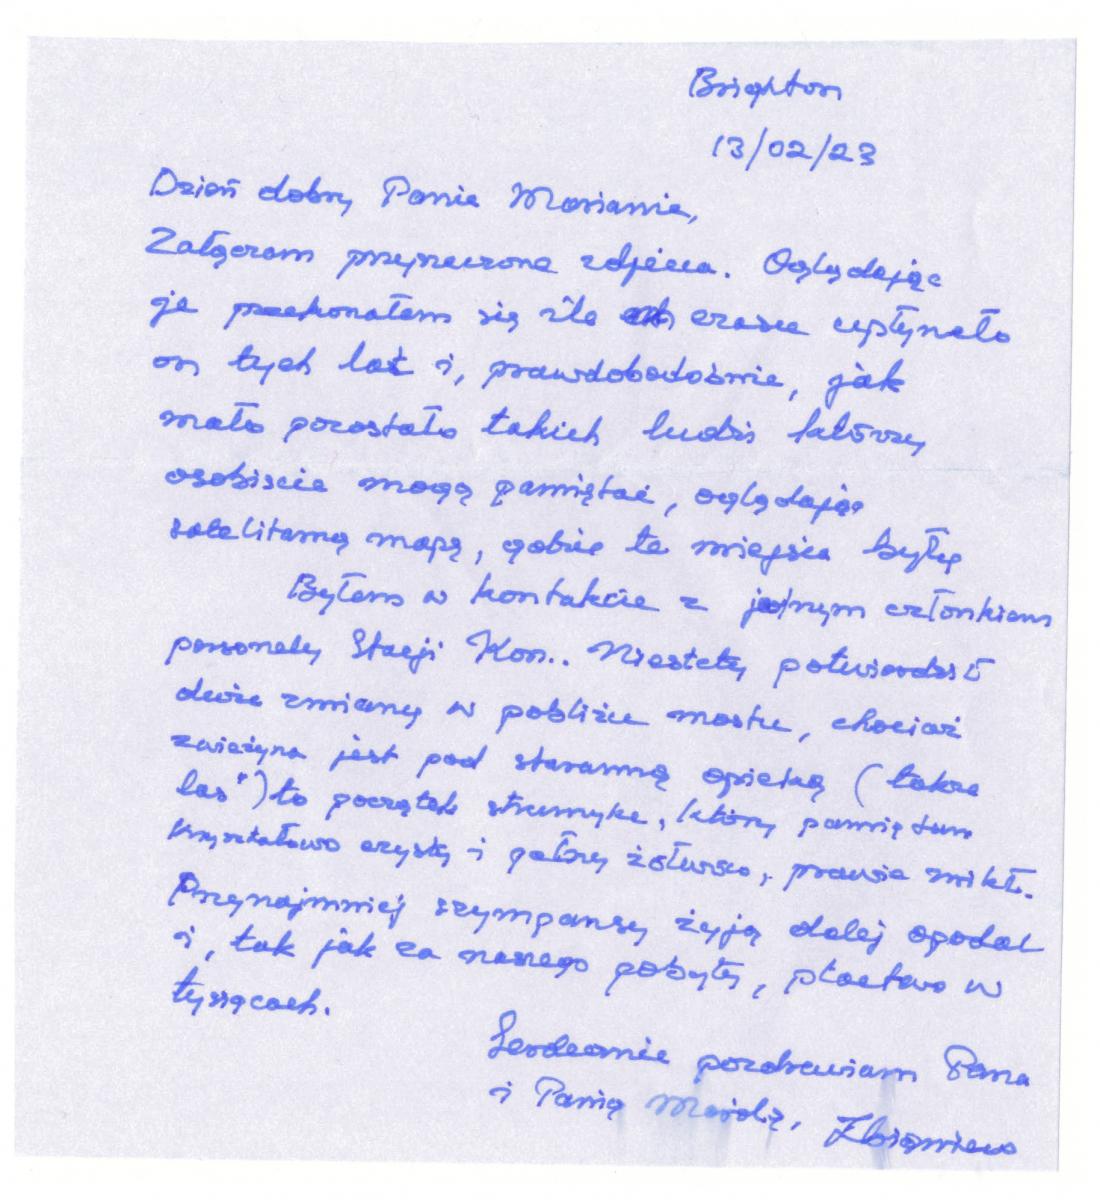 Brighton
13/02/23
Dzień dobry Panie Marianie,
Załączam przyrzeczone zdjęcia. Oglądając
je przekonałem się ile czasu upłynęło
on tych lat i, prawdobodobnie, jak
mało pozostało takich ludzi którzy
osobiscie mogą pamiętać, oglądając
satelitarną mapę, gdzie te miejsca były
Byłem w kontakcie z jednym członkiem
personelu Stacji Kon.. Niestety potwierdził
duże zmiany w pobliżu mostu, chociaż
zwieżyna jest pod staranną opieką (także
las") to początek strumyka, który pamiętam
krysztatowo czysty i pełny żołwsko, prawie znikł.
Przynajmniej szympansy żyją dalej opodal
i, tak jak za naszego pobytu, ptactwo w
tysiącach.
Serdecznie pozdrawiam Pana
i Panią Magdę, Zbigniew